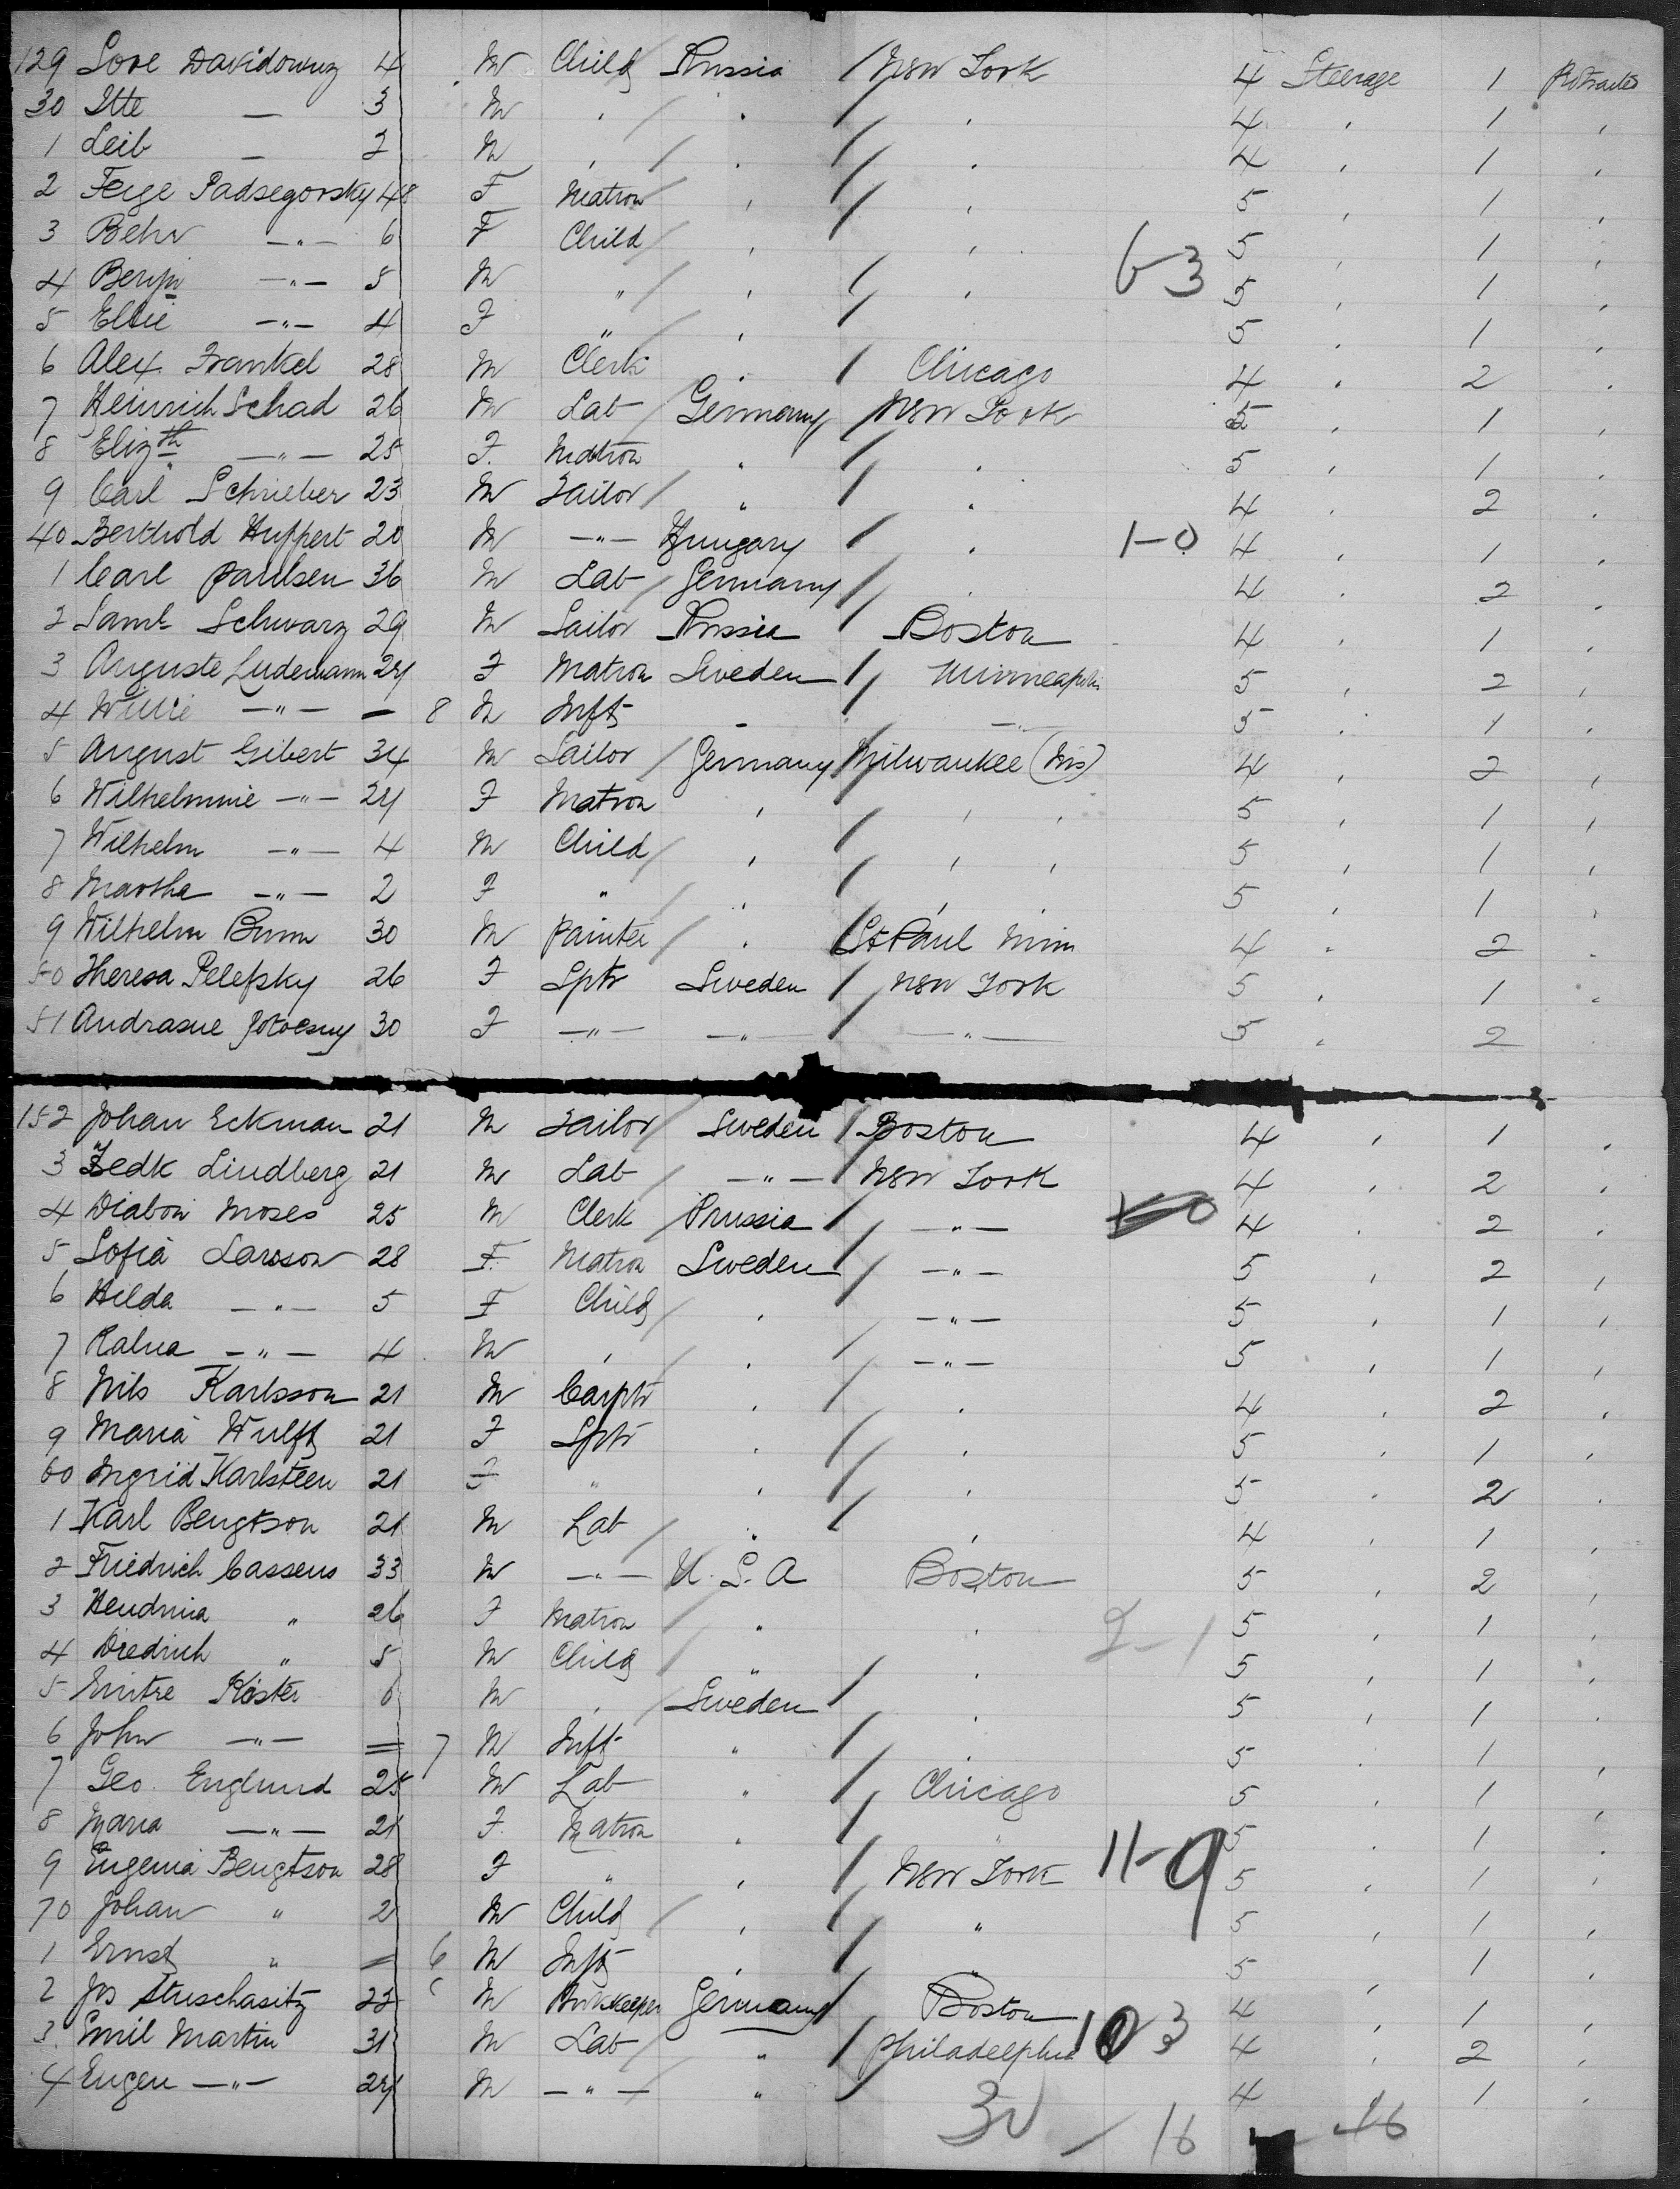 129 Sore Davidowicz 4 M Child Russia New York 4 Steerage 1 Protracted
30 Itte — 3 M " " " 4 " 1 "
1 Leib — 2 M " " " 4 " 1 "
2 Feige Padsegorsky 48 F Matron " " 5 " 1 "
3 Behr —"— 6 F Child " " 5 " 1 "
63
4 Benj. —"— 5 M " " " 5 " 1 "
5 Ellie —"— 4 F " " 5 " 1 "
6 Alex. Frankel 28 M Clerk " Chicago 4 " 2 "
7 Heinrich Schad 26 M Lab Germany New York 5 " 1 "
8 Elizth —"— 25 F. Matron " " 5 " 1 "
9 Carl Schrieber 23 M Tailor " " 4 " 2 "
40 Berthold Huppert 20 M —"— Hungary " 1-0 4 " 1 "
1 Carl Paulsen 36 M Lab Germany " 4 " 2 "
2 Saml Schwarz 29 M Sailor Russia Boston 4 " 1 "
3 Auguste Ludemann 24 F Matron Sweden Minneapolis 5 " 2 "
4 Willie —"— — 8 M Inft — —"— 5 " 1 "
5 August Gibert 34 M Sailor Germany Milwaukee (Wis) 4 " 2 "
6 Wilhelmine —"— 24 F Matron " " " 5 " 1 "
7 Wilhelm —"— 4 M Child " " " 5 " 1 "
8 Martha —"— 2 F " " " " 5 " 1 "
9 Wilhelm Bumm 30 M Painter " St Paul Minn 4 " 2 "
50 Theresa Pelefsky 26 F Sptr Sweden New York 5 " 1 "
51 Andrasne 30 F —"— —"— —"— 5 " 2
152 Johan Eckman 21 M Tailor Sweden Boston 4 " 1 "
3 Lindberg 21 M Lab —"— New York 4 " 2 "
4 Moses 25 M Clerk Prussia —"— 4 " 2 "
5 Sofia Larsson 28 F. Matron Sweden —"— 5 " 2 "
6 Hilda —"— 5 F Child " —"— 5 " 1 "
7 —"— 4 M " " —"— 5 " 1 "
8 Nils Karlsson 21 M Carptr " " 4 " 2 "
9 Maria Wulff 21 F Sptr " " 5 " 1 "
60 Ingrid Karlsteen 21 F " " " 5 " 2 "
1 Karl Bengtson 21 M Lab " " 4 " 1 "
2 Friedrich Cassens 33 M —"— U.S.A Boston 5 " 2 "
3 " 26 F Matron " " 5 " 1 "
2-1
4 Diedrich " 5 M Child " " 5 " 1 "
5 Köster 6 M " Sweden " 5 " 1 "
6 John —"— = 7 M Inft " " 5 " 1 "
7 Geo. Englund 25 M Lab " Chicago 5 " 1 "
8 Maria —"— 21 F. Matron " " 5 " 1 "
9 Eugenia Bengtson 28 F " " New York 11-9 5 " 1 "
70 Johan " 2 M Child " " 5 " 1 "
1 Ernst " = 6 M Inft " " 5 " 1 "
2 Jos 25 M Bookkeeper Germany Boston 4 " 1 "
3 Emil Martin 31 M Lab " Philadelphia 3 4 " 2 "
4 Eugen —"— 24 M —"— " 4 " 1 "
16 16